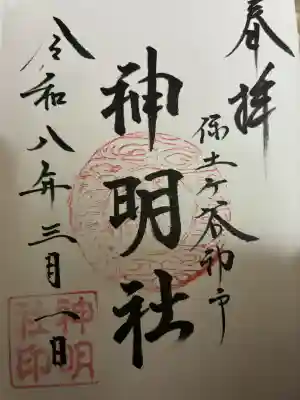 奉拝
保土ヶ谷神戸
神明社
令和八年三月八日
神明社印